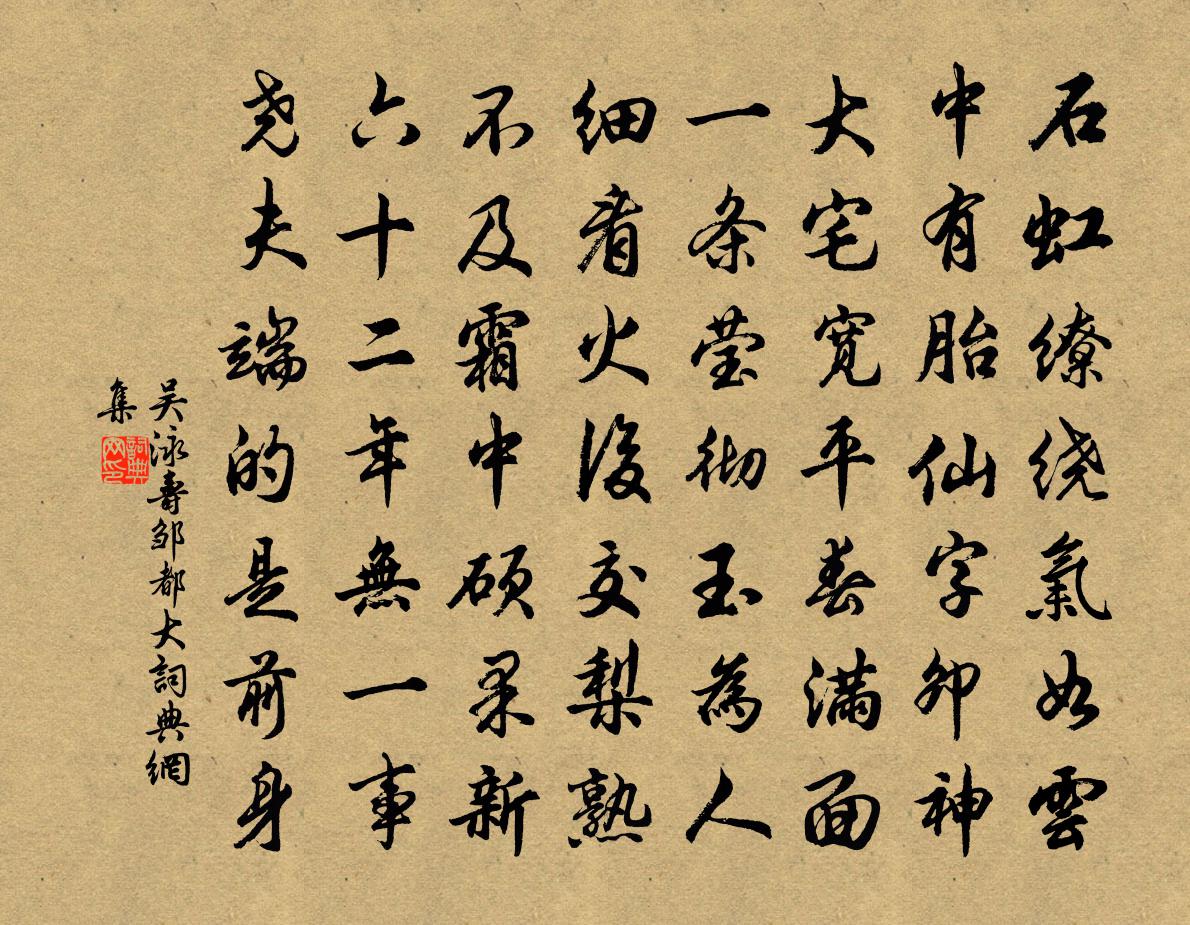 石虹缭绕氣如雲
中有胎仙字卯神
大宅宽平春满面
一条莹彻玉為人
细看火後交梨熟
不及霜中硕果新
六十二年無一事
尧夫端的是前身
吴泳壽邹都大詞典網
集
詞典网印